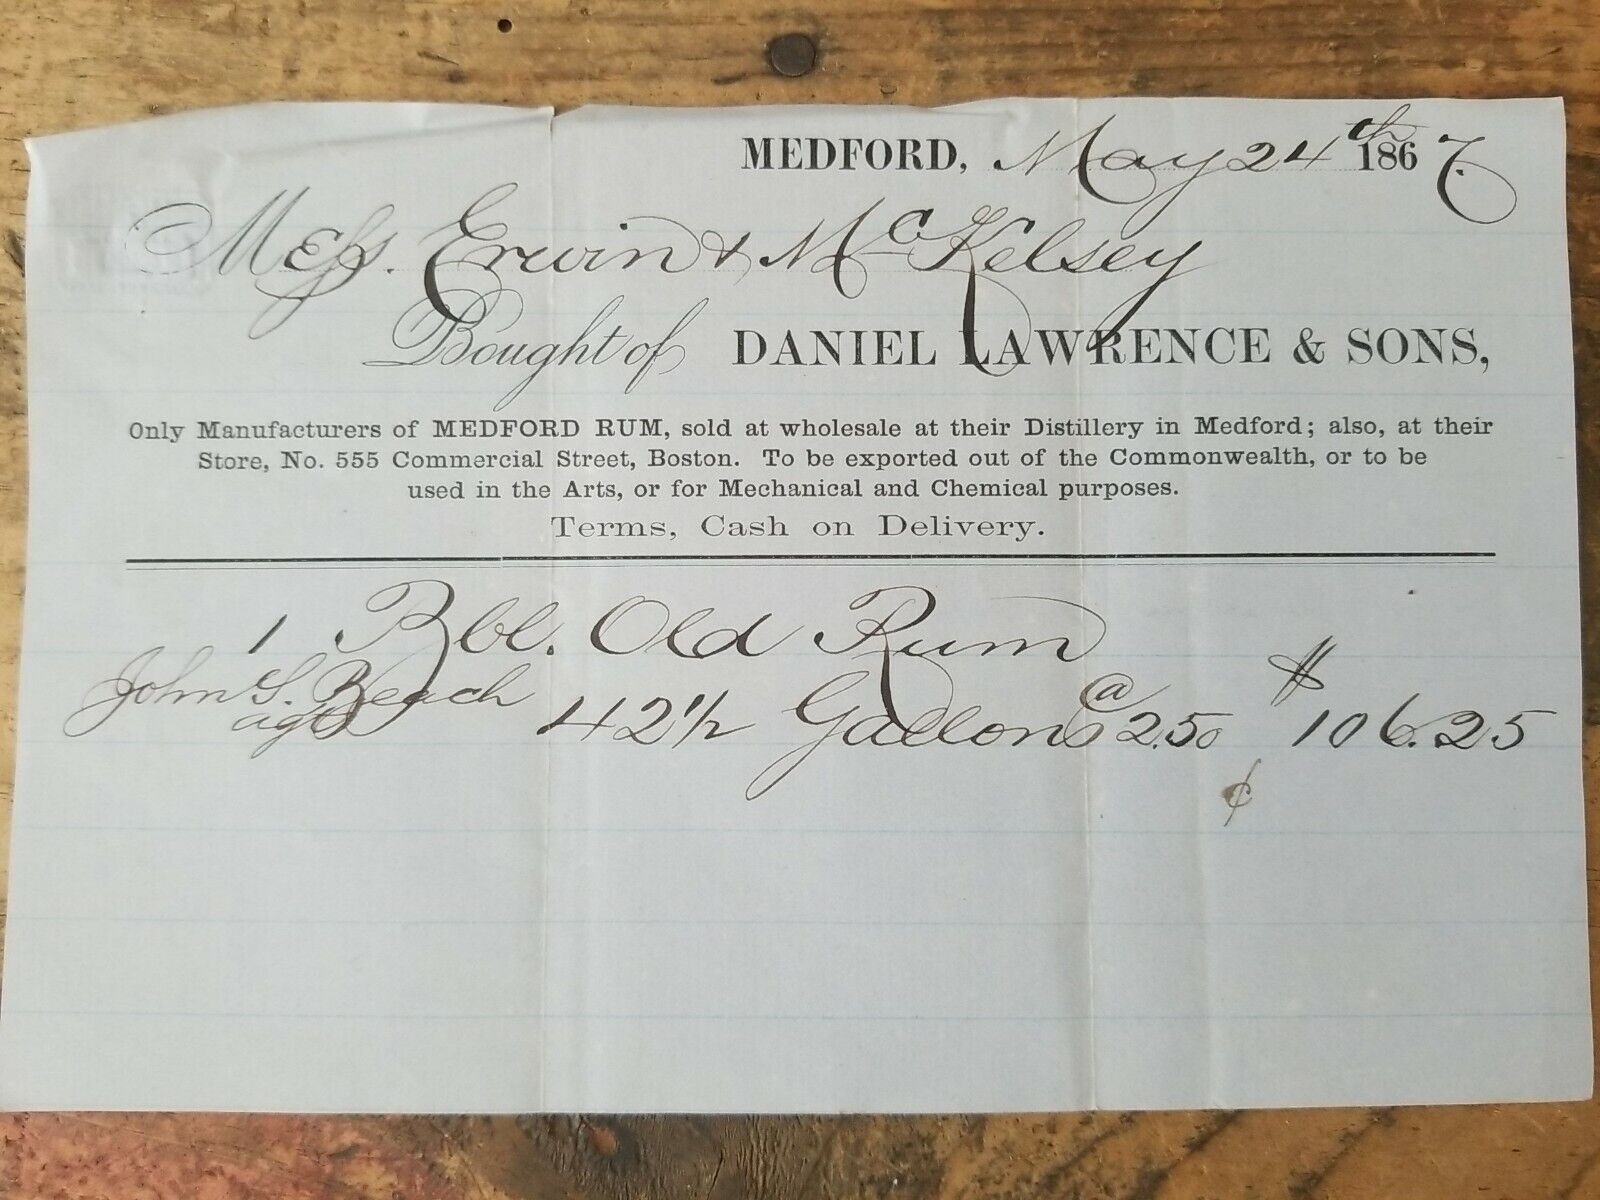 MEDFORD, May 24th 1867.
Mess. Erwin & McKelsey
Bought of DANIEL LAWRENCE & SONS,
Only Manufacturers of MEDFORD RUM, sold at wholesale at their Distillery in Medford; also, at their
Store, No. 555 Commercial Street, Boston. To be exported out of the Commonwealth, or to be
used in the Arts, or for Mechanical and Chemical purposes.
Terms, Cash on Delivery.
1 Bbl. Old Rum
John S. Beach 42 1/2 Gallons @ 2.50 $106.25
agt
¢